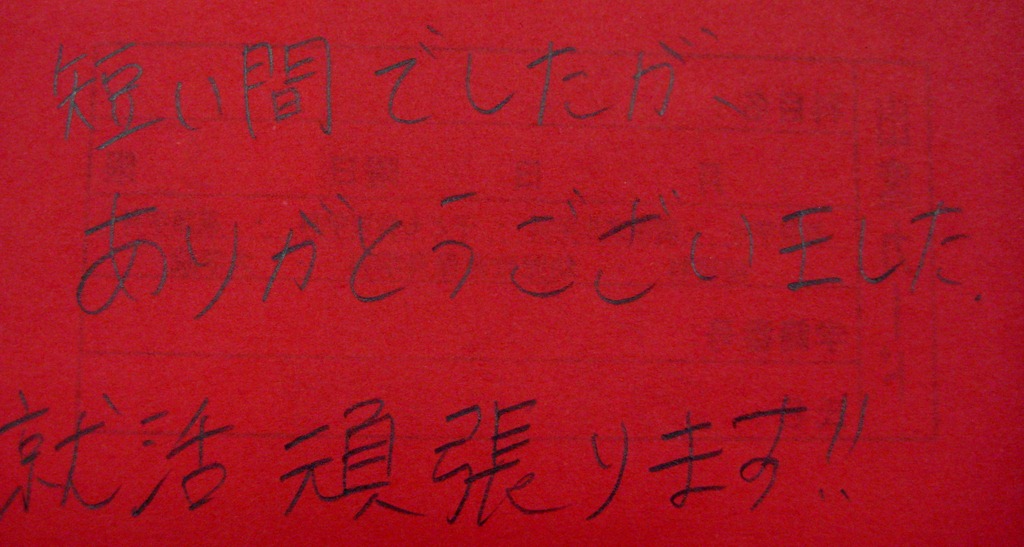 短い間でしたが、
ありがとうございました.
就活頑張ります!!